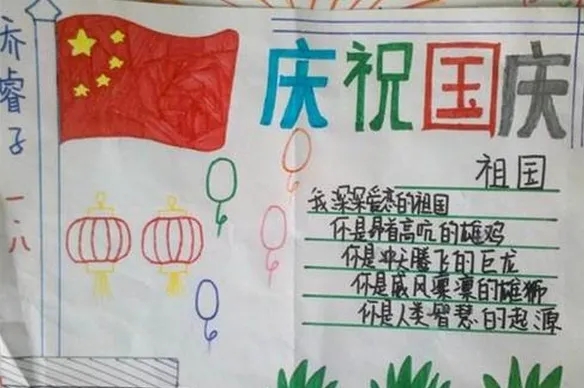 乔睿子
一.八
庆祝国庆
祖国
我深深爱恋的祖国
你是昂首高吭的雄鸡
你是冲天腾飞的巨龙
你是威风凛凛的雄狮
你是人类智慧的起源